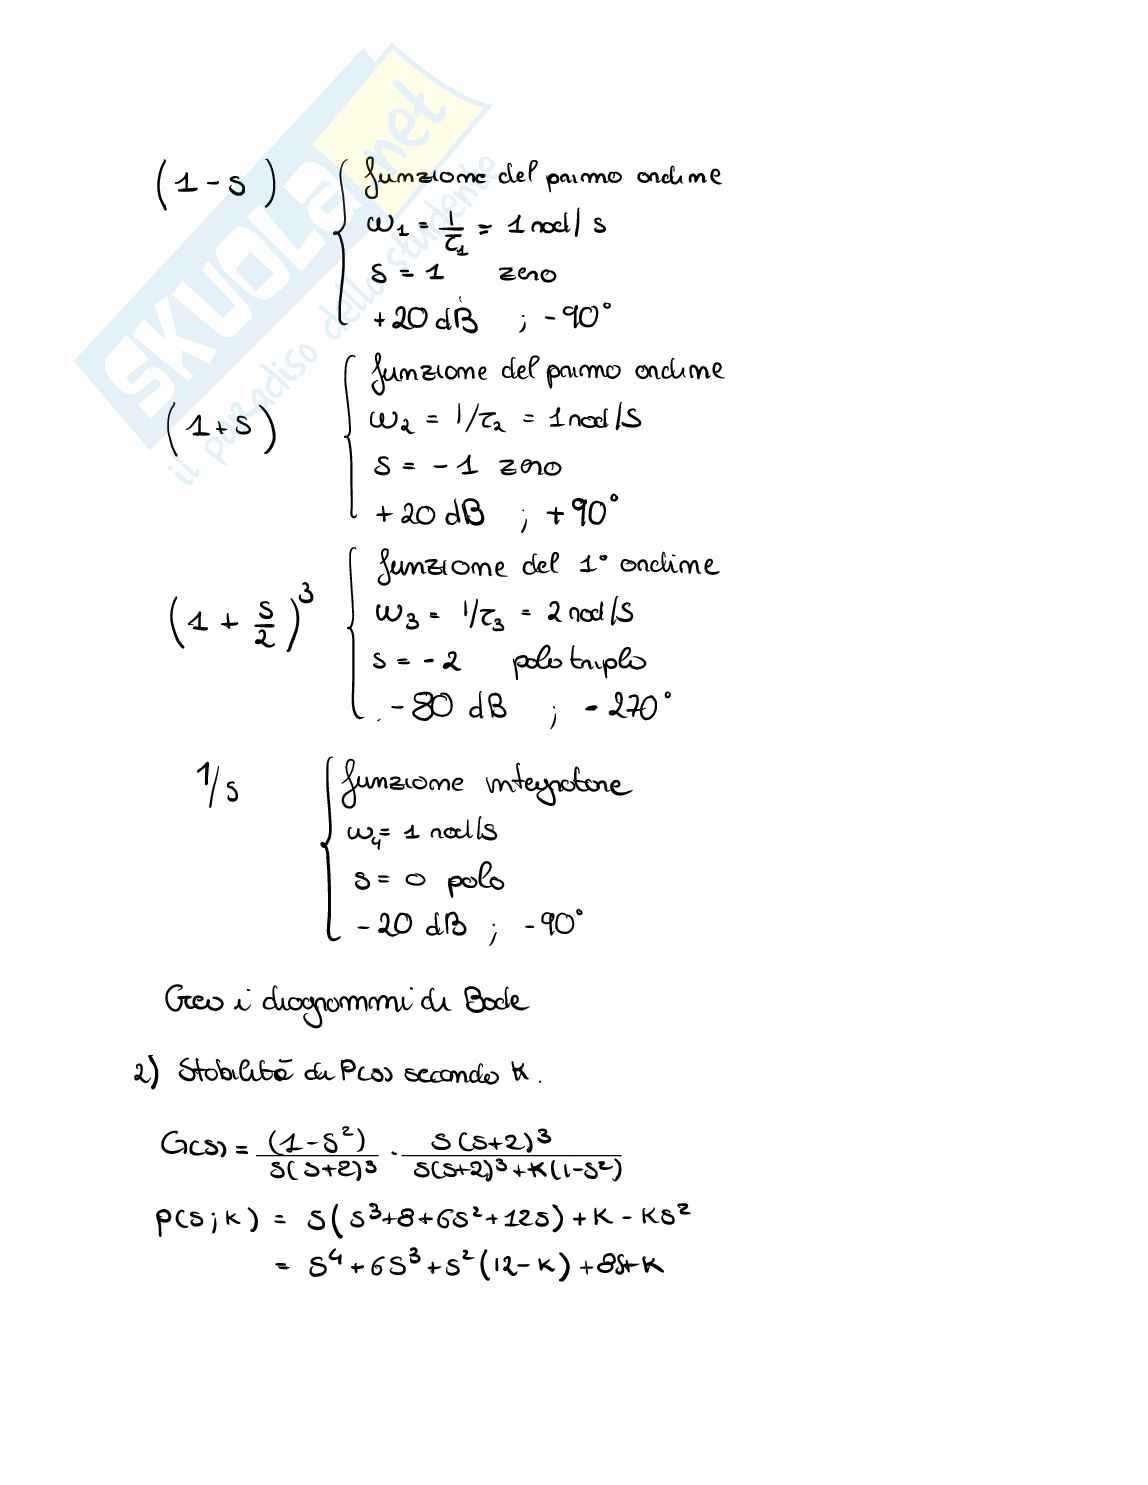 SKUOLA.net
il paradiso dello studente
(1 - s) { funzione del primo ordine
ω₁ = 1/τ₁ = 1 rad/s
s = 1 zero
+20 dB ; -90°
(1 + s) { funzione del primo ordine
ω₂ = 1/τ₂ = 1 rad/s
s = -1 zero
+20 dB ; +90°
(1 + s/2)³ { funzione del 1° ordine
ω₃ = 1/τ₃ = 2 rad/s
s = -2 polo triplo
-80 dB ; -270°
1/s { funzione integratore
ω₄ = 1 rad/s
s = 0 polo
-20 dB ; -90°
Creo i diagrammi di Bode
2) Stabilità di P(s) secondo K.
G(s) = (1-s²)/(s(s+2)³) · s(s+2)³/(s(s+2)³+K(1-s²))
P(s;k) = s(s³+8+6s²+12s)+K-Ks²
= s⁴+6s³+s²(12-K)+8s+K